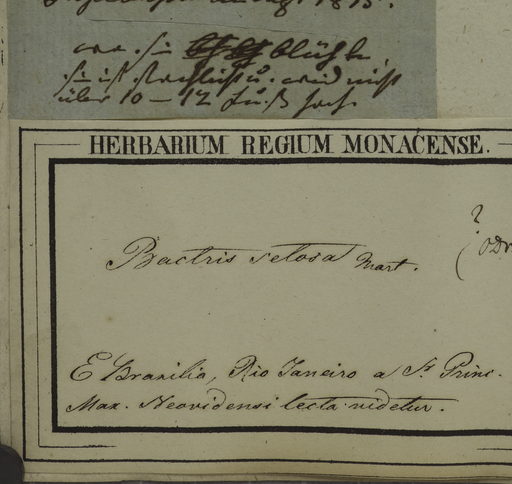 1815.
wo sie blühte,
sie ist stachlicht u. wird nicht
über 10 – 12 Fuß hoch.
HERBARIUM REGIUM MONACENSE.
?
Bactris setosa Mart.
E Brasilia, Rio Janeiro a Sr. Princ.
Max. Neovidensi lecta videtur.